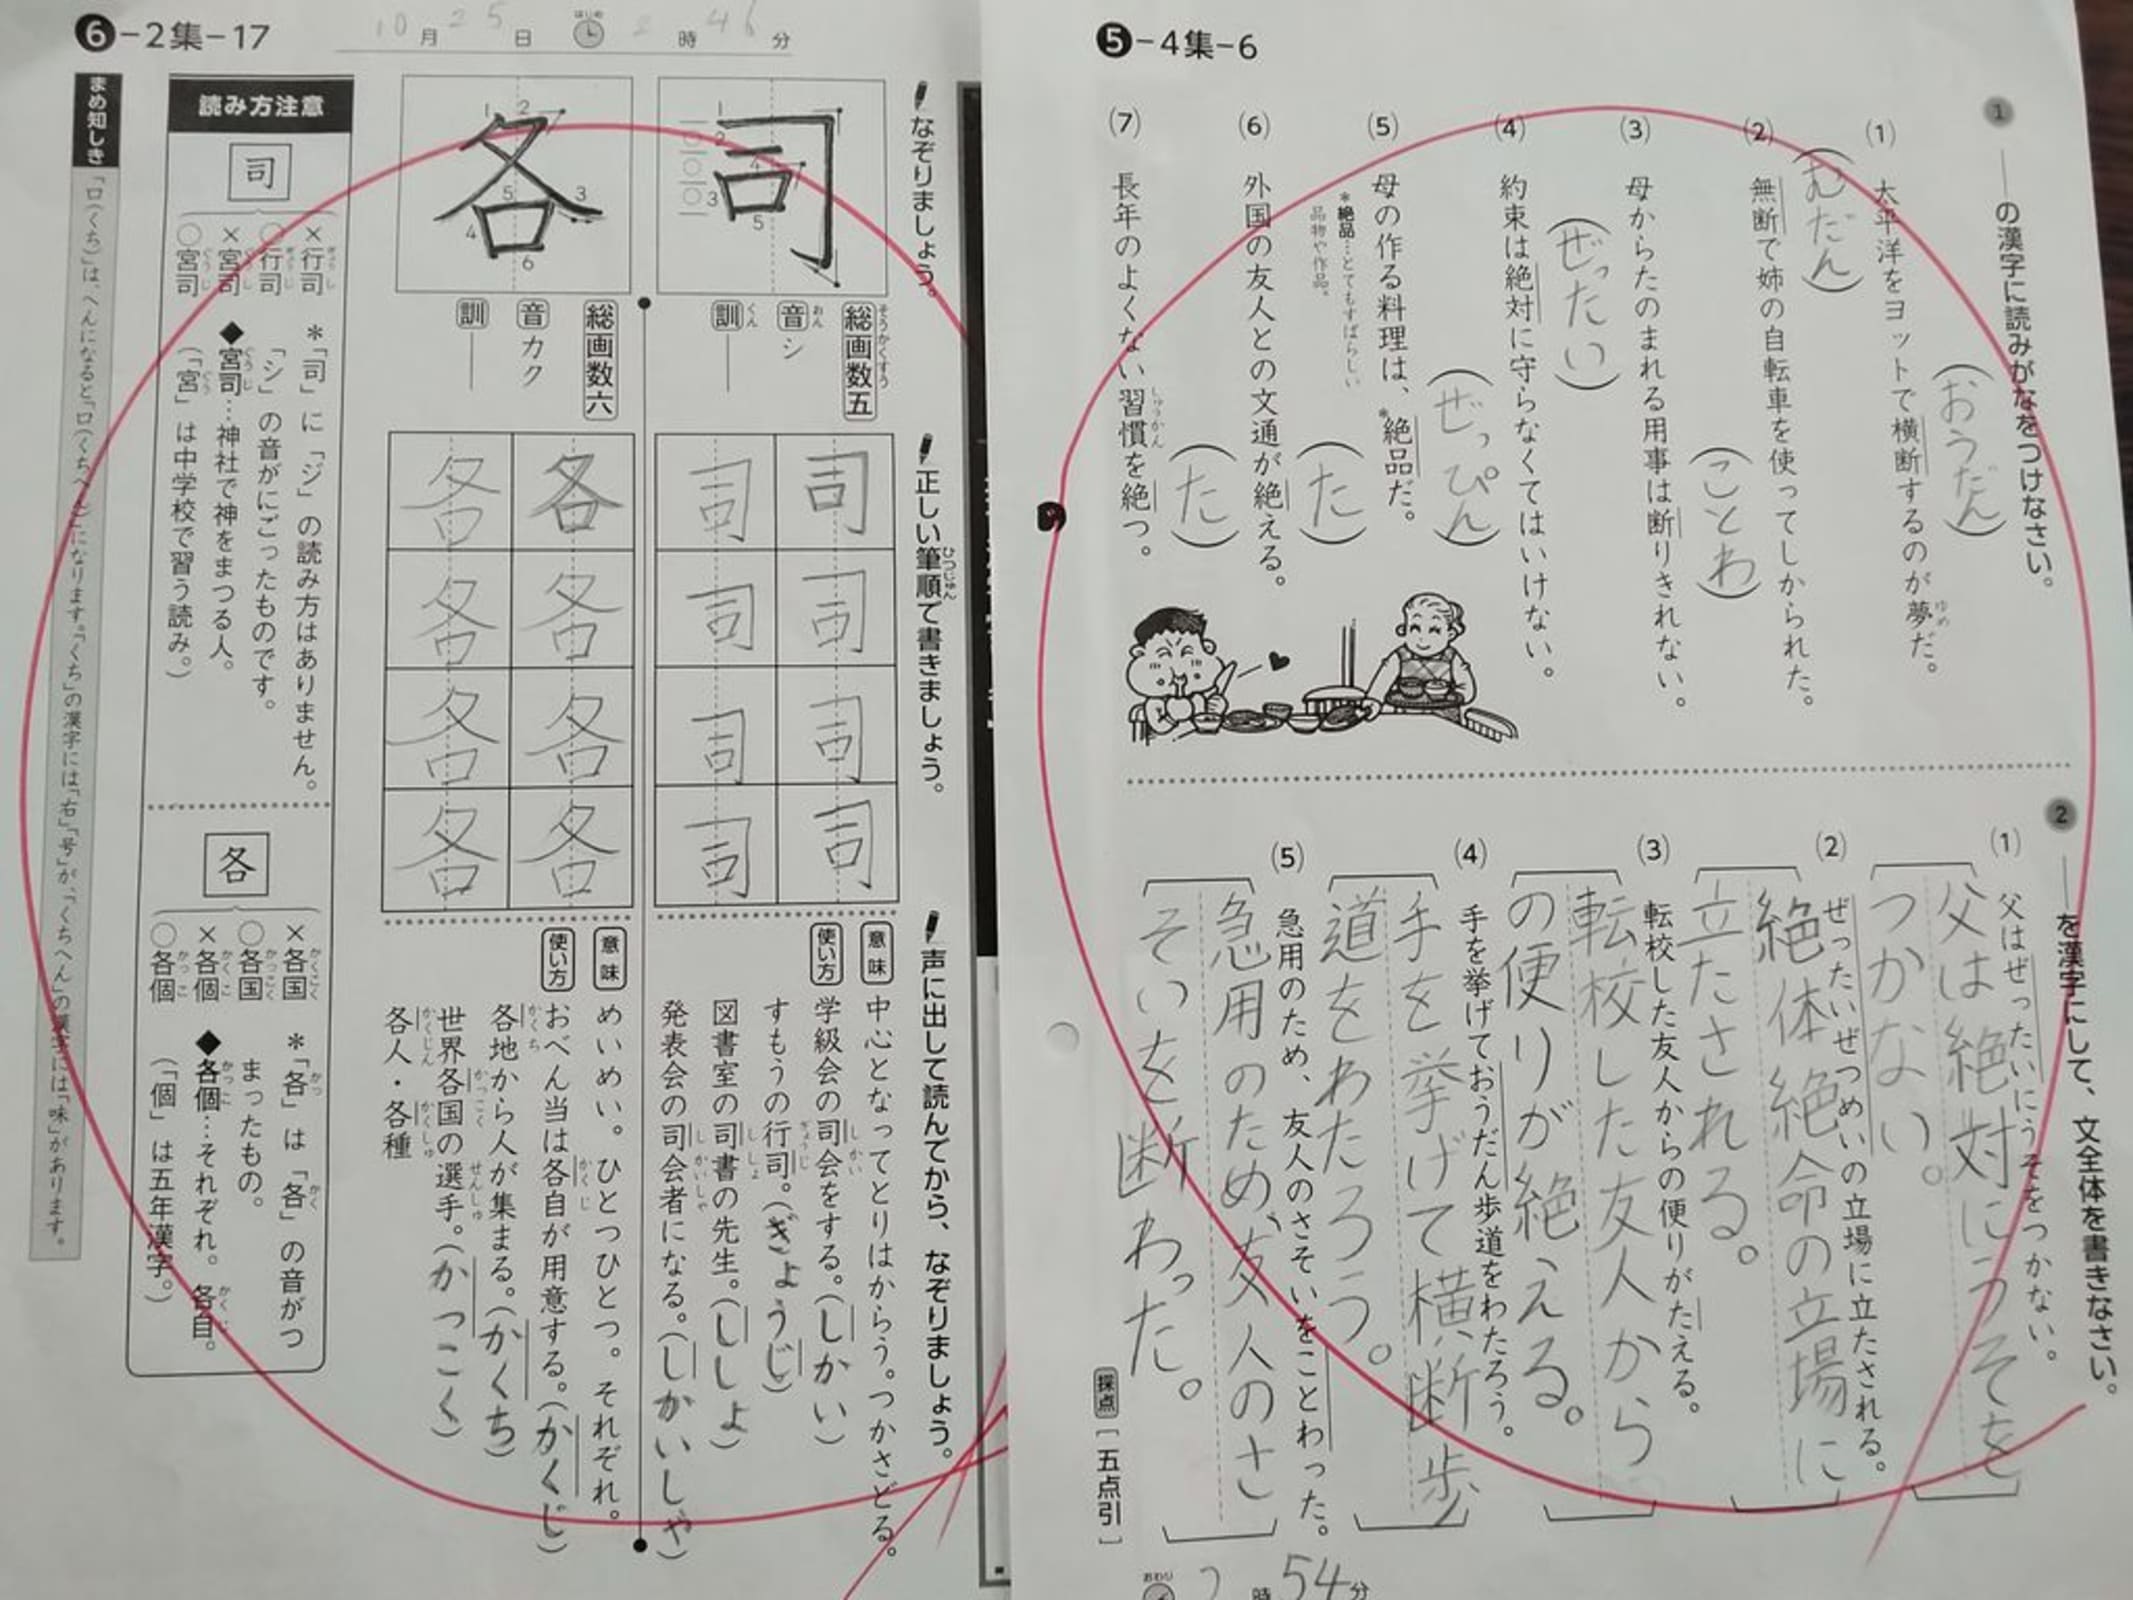 ❺-4集-6
1 ──の漢字に読みがなをつけなさい。
(1) 太平洋をヨットで横断するのが夢だ。
ゆめ
(おうだん)
(2) 無断で姉の自転車を使ってしかられた。
(むだん)
(3) 母からたのまれる用事は断りきれない。
(ことわ)
(4) 約束は絶対に守らなくてはいけない。
(ぜったい)
(5) 母の作る料理は、*絶品だ。
(ぜっぴん)
*絶品…とてもすばらしい
品物や作品。
(6) 外国の友人との文通が絶える。
(た)
(7) 長年のよくない習慣を絶つ。
しゅうかん
(た)
2 ──を漢字にして、文全体を書きなさい。
(1) 父はぜったいにうそをつかない。
父は絶対にうそを
つかない。
(2) ぜったいぜつめいの立場に立たされる。
絶体絶命の立場に
立たされる。
(3) 転校した友人からの便りがたえる。
転校した友人から
の便りが絶える。
(4) 手を挙げておうだん歩道をわたろう。
手を挙げて横断歩
道をわたろう。
(5) 急用のため、友人のさそいをことわった。
急用のため、友人のさ
そいを断わった。
採点［五点引］
おわり
時54分
❻-2集-17
10月25日 はじめ 2時46分
なぞりましょう。
司
1 2 3 4 5
総画数五
そうかくすう
音 シ
おん
訓 ──
くん
各
1 2 3 4 5 6
総画数六
音 カク
訓 ──
正しい筆順で書きましょう。
ひつじゅん
司 司 司 司
司 司 司 司
各 各 各 各
各 各 各 各
声に出して読んでから、なぞりましょう。
意味 中心となってとりはからう。つかさどる。
使い方 学級会の司会をする。(しかい)
しかい
すもうの行司。(ぎょうじ)
ぎょうじ
図書室の司書の先生。(ししょ)
ししょ
発表会の司会者になる。(しかいしゃ)
しかいしゃ
意味 めいめい。ひとつひとつ。それぞれ。
使い方 おべん当は各自が用意する。(かくじ)
かくじ
各地から人が集まる。(かくち)
かくち
世界各国の選手。(かっこく)
かっこく せんしゅ
各人・各種
かくじん かくしゅ
読み方注意
司
×行司 ぎょうし
○行司 ぎょうじ
×宮司 ぐうし
○宮司 ぐうじ
*「司」に「ジ」の読み方はありません。
「シ」の音がにごったものです。
◆宮司…神社で神をまつる人。
ぐうじ
(「宮」は中学校で習う読み。)
ぐう
各
×各国 かくこく
○各国 かっこく
×各個 かくこ
○各個 かっこ
*「各」は「各」の音がつ
かっ かく
まったもの。
◆各個…それぞれ。各自。
かっこ かくじ
(「個」は五年漢字。)
まめ知しき
「口(くち)」は、へんになると「口(くちへん)」になります。「くち」の漢字には「右」「号」が、「くちへん」の漢字には「味」があります。